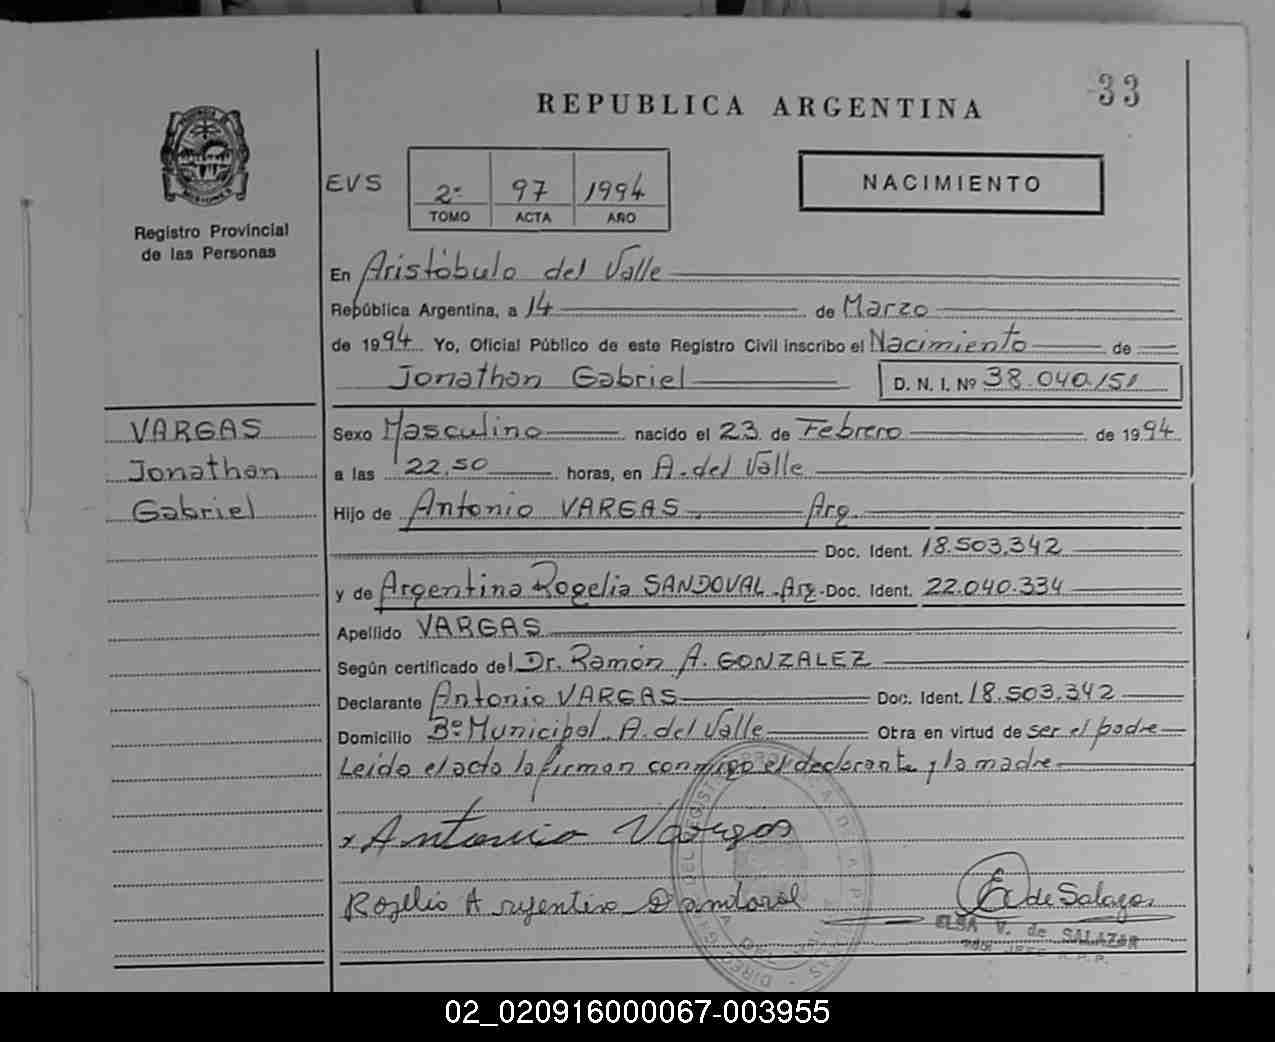 33
REPUBLICA ARGENTINA
Registro Provincial
de las Personas
EVS
2º 97 1994
TOMO ACTA AÑO
NACIMIENTO
En Aristóbulo del Valle
República Argentina, a 14 de Marzo
de 1994 Yo, Oficial Público de este Registro Civil inscribo el Nacimiento de
Jonathan Gabriel D. N. I. Nº 38.040.151
VARGAS
Jonathan
Gabriel
Sexo Masculino nacido el 23 de Febrero de 1994
a las 22,50 horas, en A. del Valle
Hijo de Antonio VARGAS, Arg.
Doc. Ident. 18.503.342
y de Argentina Rogelia SANDOVAL. Arg. Doc. Ident. 22.040.334
Apellido VARGAS
Según certificado del Dr. Ramón A. GONZALEZ
Declarante Antonio VARGAS Doc. Ident. 18.503.342
Domicilio Bº Municipal. A. del Valle Otra en virtud de ser el padre
Leida el acta la firman conmigo el declarante y la madre
x Antonio Vargas
Rogelia Argentina Sandoval
E de Salazar
ELSA V. de SALAZAR
02_020916000067-003955